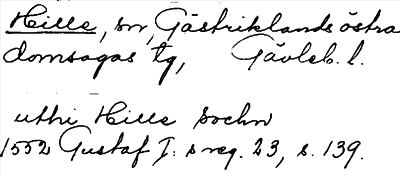 Hille, sn, Gästriklands östra
domsagas tg, Gävleb. l.
uthi Hille sochn
1552 Gustaf I:s reg. 23, s. 139.